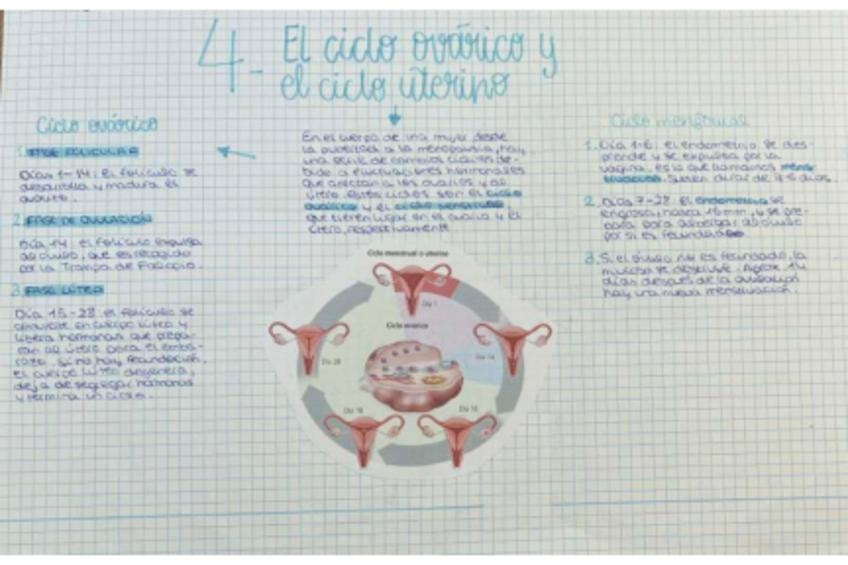 4- El ciclo ovárico y
el ciclo uterino
Ciclo ovárico
1. FASE FOLICULAR
Días 1-14: El folículo se
desarrolla y madura el
ovocito.
2. FASE DE OVULACIÓN
Día 14: el folículo expulsa
al óvulo, que es recogido
por la Trompa de Falopio.
3. FASE LÚTEA
Día 15-28: el folículo se
convierte en cuerpo lúteo y
libera hormonas que prepa-
ran al útero para el emba-
razo. Si no hay fecundación,
el cuerpo lúteo degenera,
deja de segregar hormonas
y termina un ciclo.
En el cuerpo de una mujer desde
la pubertad a la menopausia, hay
una serie de cambios cíclicos de-
bido a fluctuaciones hormonales
que afectan a los ovarios y al
útero. Estos ciclos son el ciclo
ovárico y el ciclo menstrual,
que tienen lugar en el ovario y el
útero, respectivamente
Ciclo menstrual o uterino
Día 1
Ciclo ovárico
Día 14
Día 28
Ciclo menstrual
1. Día 1-6: el endometrio se des-
prende y se expulsa por la
vagina, es lo que llamamos mens-
truación. Suelen durar de días.
2. Días 7-28: El endometrio se
engrosa, hasta 16mm, y se pre-
para para albergar al óvulo
por si es fecundado
3. Si el óvulo no es fecundado, la
mucosa se destruye. Aprox. 14
días después de la ovulación
hay una nueva menstruación.